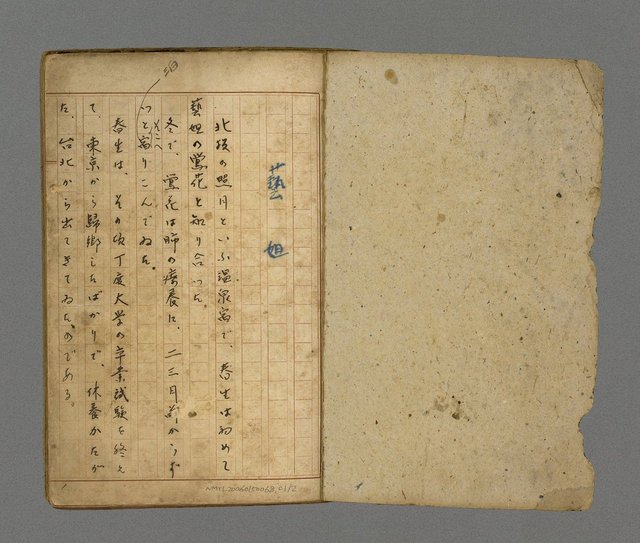 藝妲
北投の照月といふ温泉宿で、春生は初めて
藝妲の鶯花と知り合つた。
冬で、鶯花は肺の療養に、二三月前からず
つと
そこへ
宿りこんでゐた。
春生は、その頃丁度大学の卒業試験を終え
て、東京から歸郷したばかりで、休養かたが
た、台北から出てきてゐたのである。
NMTL20060150068_01/2